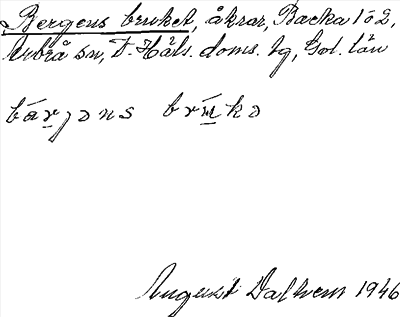 Bergens bruket, åkrar, Backa 1 o 2,
Arbrå sn, V. Häls. doms. hg, Gvl. län
bärjəns brukə
August Dalhem 1946